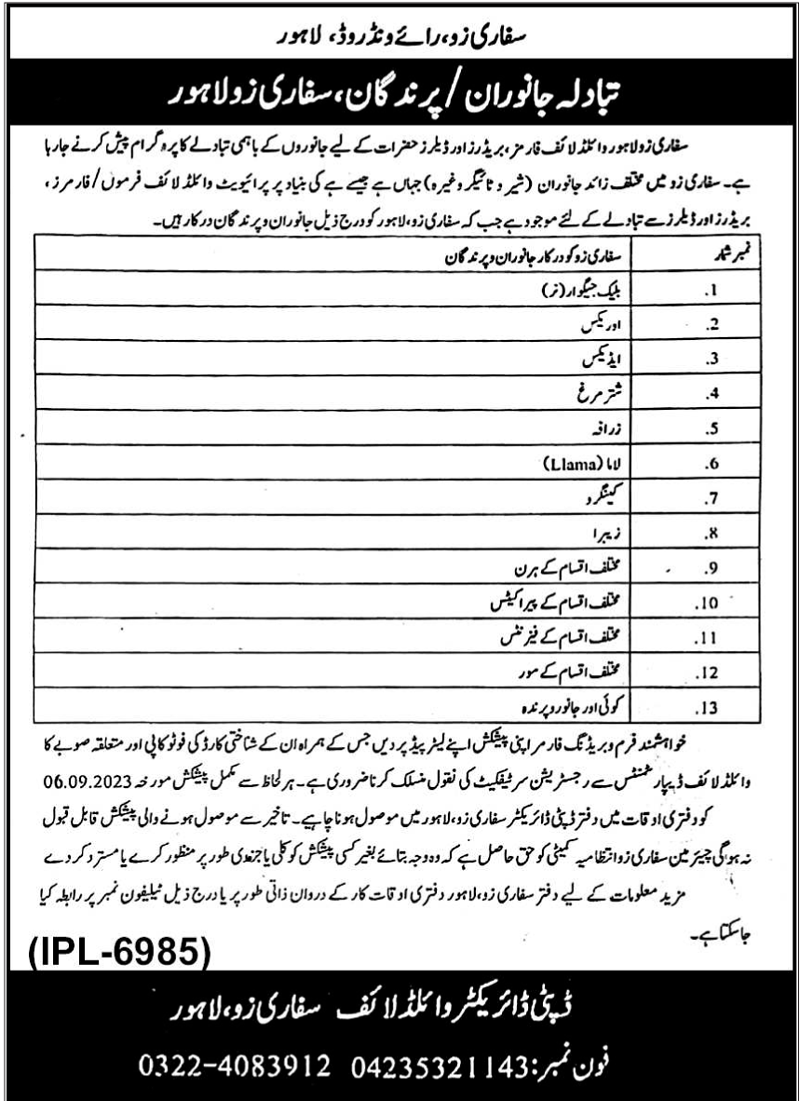 سفاری زو، رائے ونڈ روڈ، لاہور
تبادلہ جانوران/پرندگان، سفاری زو لاہور
سفاری زو لاہور وائلڈ لائف فارمز، بریڈرز اور ڈیلرز حضرات کے لیے جانوروں کے باہمی تبادلے کا پروگرام پیش کرنے جارہا
ہے۔ سفاری زو میں مختلف زائد جانوران (شیر و ٹائیگر وغیرہ) جہاں ہے جیسے ہے کی بنیاد پر پرائیویٹ وائلڈ لائف فرموں/فارمرز،
بریڈرز اور ڈیلرز سے تبادلے کے لئے موجود ہے جب کہ سفاری زو، لاہور کو درج ذیل جانوران و پرندگان درکار ہیں۔
نمبر شمار سفاری زو کو درکار جانوران و پرندگان
1. بلیک جیگوار (نر)
2. اوریکس
3. ایڈیکس
4. شتر مرغ
5. زرافہ
6. لاما (Llama)
7. کینگرو
8. زیبرا
9. مختلف اقسام کے ہرن
10. مختلف اقسام کے پیراکیٹس
11. مختلف اقسام کے فیزنٹس
12. مختلف اقسام کے مور
13. کوئی اور جانور و پرندہ
خواہشمند فرم و بریڈنگ فارمر اپنی پیشکش اپنے لیٹر پیڈ پر دیں جس کے ہمراہ ان کے شناختی کارڈ کی فوٹو کاپی اور متعلقہ صوبے کا
وائلڈ لائف ڈیپارٹمنٹس سے رجسٹریشن سرٹیفکیٹ کی نقول منسلک کرنا ضروری ہے۔ ہر لحاظ سے مکمل پیشکش مورخہ 06.09.2023
کو دفتری اوقات میں دفتر ڈپٹی ڈائریکٹر سفاری زو، لاہور میں موصول ہونا چاہیے۔ تاخیر سے موصول ہونے والی پیشکش قابل قبول
نہ ہوگی چیئرمین سفاری زو انتظامیہ کمیٹی کو حق حاصل ہے کہ وہ وجہ بتائے بغیر کسی پیشکش کو کلی یا جزوی طور پر منظور کرے یا مسترد کردے
مزید معلومات کے لیے دفتر سفاری زو، لاہور دفتری اوقات کار کے دروان ذاتی طور پر یا درج ذیل ٹیلیفون نمبر پر رابطہ کیا
جاسکتا ہے۔
(IPL-6985)
ڈپٹی ڈائریکٹر وائلڈ لائف سفاری زو، لاہور
فون نمبر: 04235321143 0322-4083912